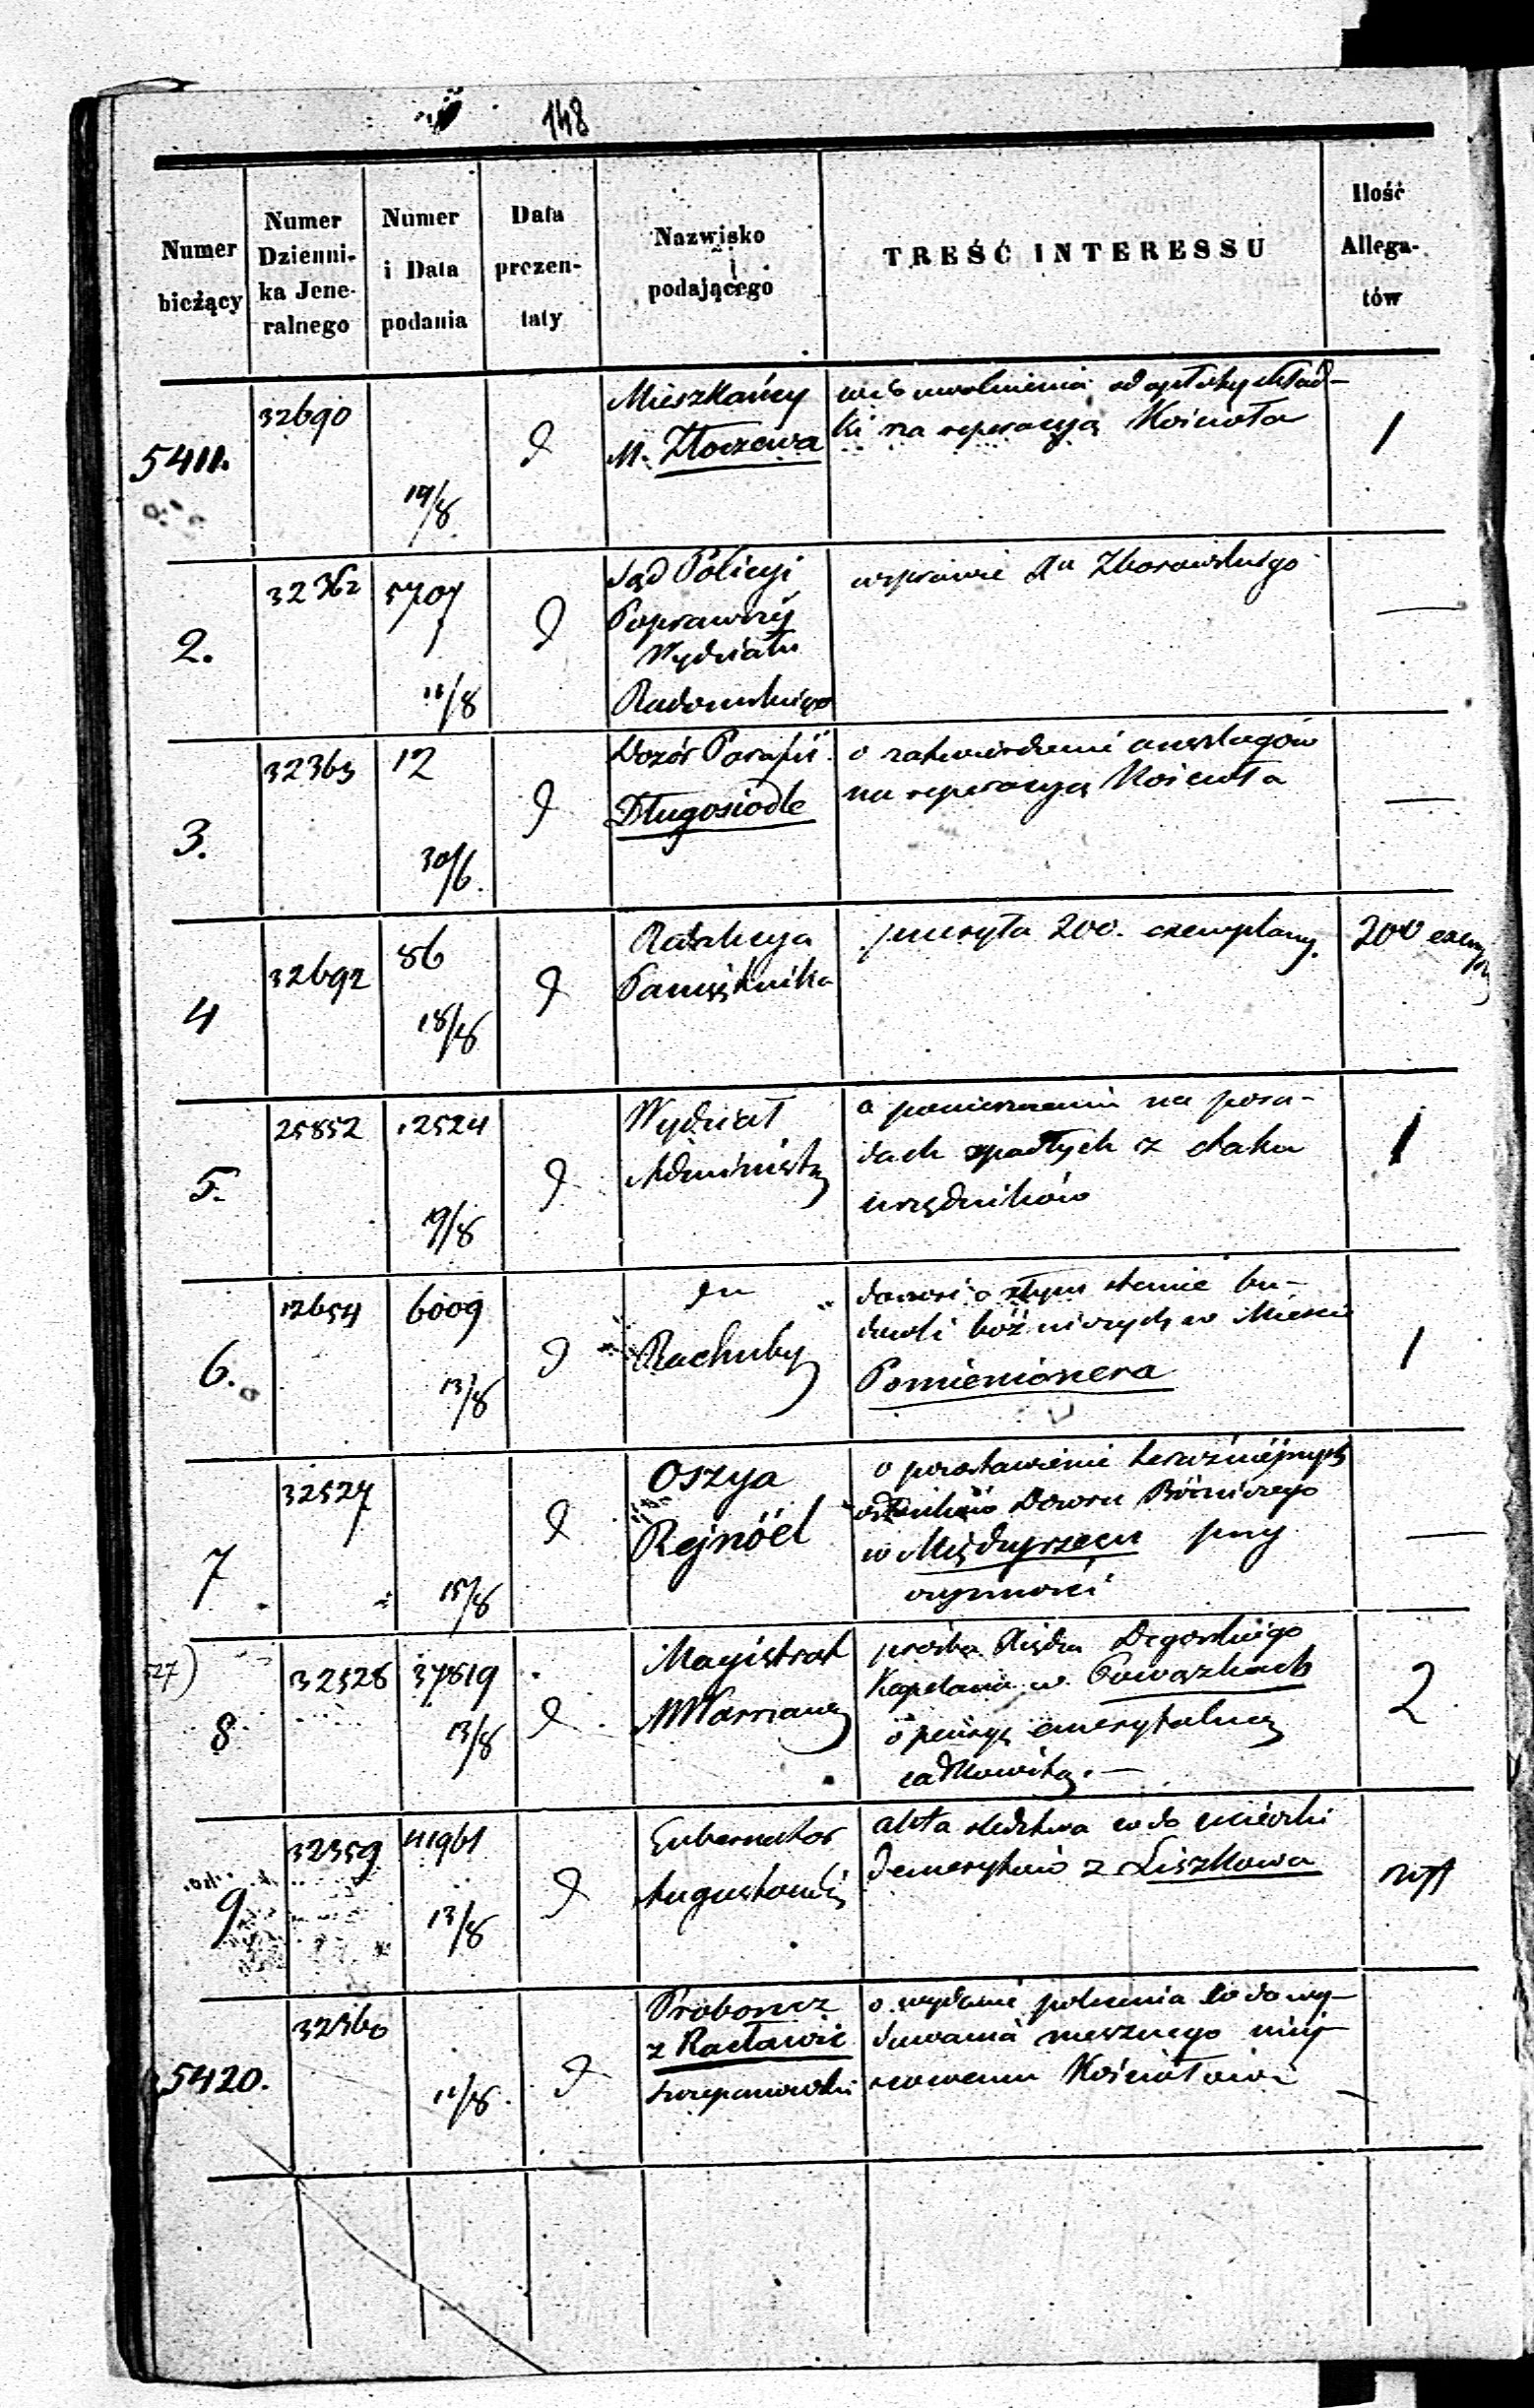 148
Numer bieżący
Numer Dzienni- ka Jene- ralnego
Numer i Data podania
Data prezen- taty
Nazwisko i podającego
TREŚĆ INTERESSU
Ilość Allega- tów
5411.
32690
19/8
Mieszkańcy
M. Złoczewa
uwolnienia od opłaty skład-
ki na reperacyą Kościoła
1
2.
32362
5707
11/8
Sąd Policyi
Poprawczej
Wydziału
Radomskiego
w sprawie Xa Zborowskiego
—
3.
32363
12
30/6.
Dozór Parafii
Długosiodle
o zatwierdzenie anszlagów
na reperacyą Kościoła
—
4
32692
86
18/8
Redakcya
Pamiętnika
przesyła 200. exemplarzy.
200 exempl
5.
25852
12524
19/8
Wydział
Administr
o pomieszczeniu na posa-
dach spadłych z etatu
urzędników
1
6.
12654
6009
13/8
"
Rachuby
donosi o złym stanie bu-
dowli bóźniczych w Mieście
Pomienionera
1
7
32527
15/8
Oszya
Rejnöel
o pozostawienie terazniejszych
członków Dozoru Bóżniczego
w Międzyrzecu przy
czynności
—
527)
8
32528
37819
13/8
Magistrat
M Warszawy
prośba Księdza Degorskiego
Kapelana w Powązkach
o pensyę emerytalną
całkowitą. —
2
9.
32359
41961
13/8
Gubernator
Augustowski
akta śledztwa co do ucieczki
Demerytów z Liszkowa
5420.
32360
11/8.
Proboszcz
z Racławic
Szczepanowski
o wydanie polecenia co do wy-
dawania mesznego miej-
scowemu Kościołowi
—